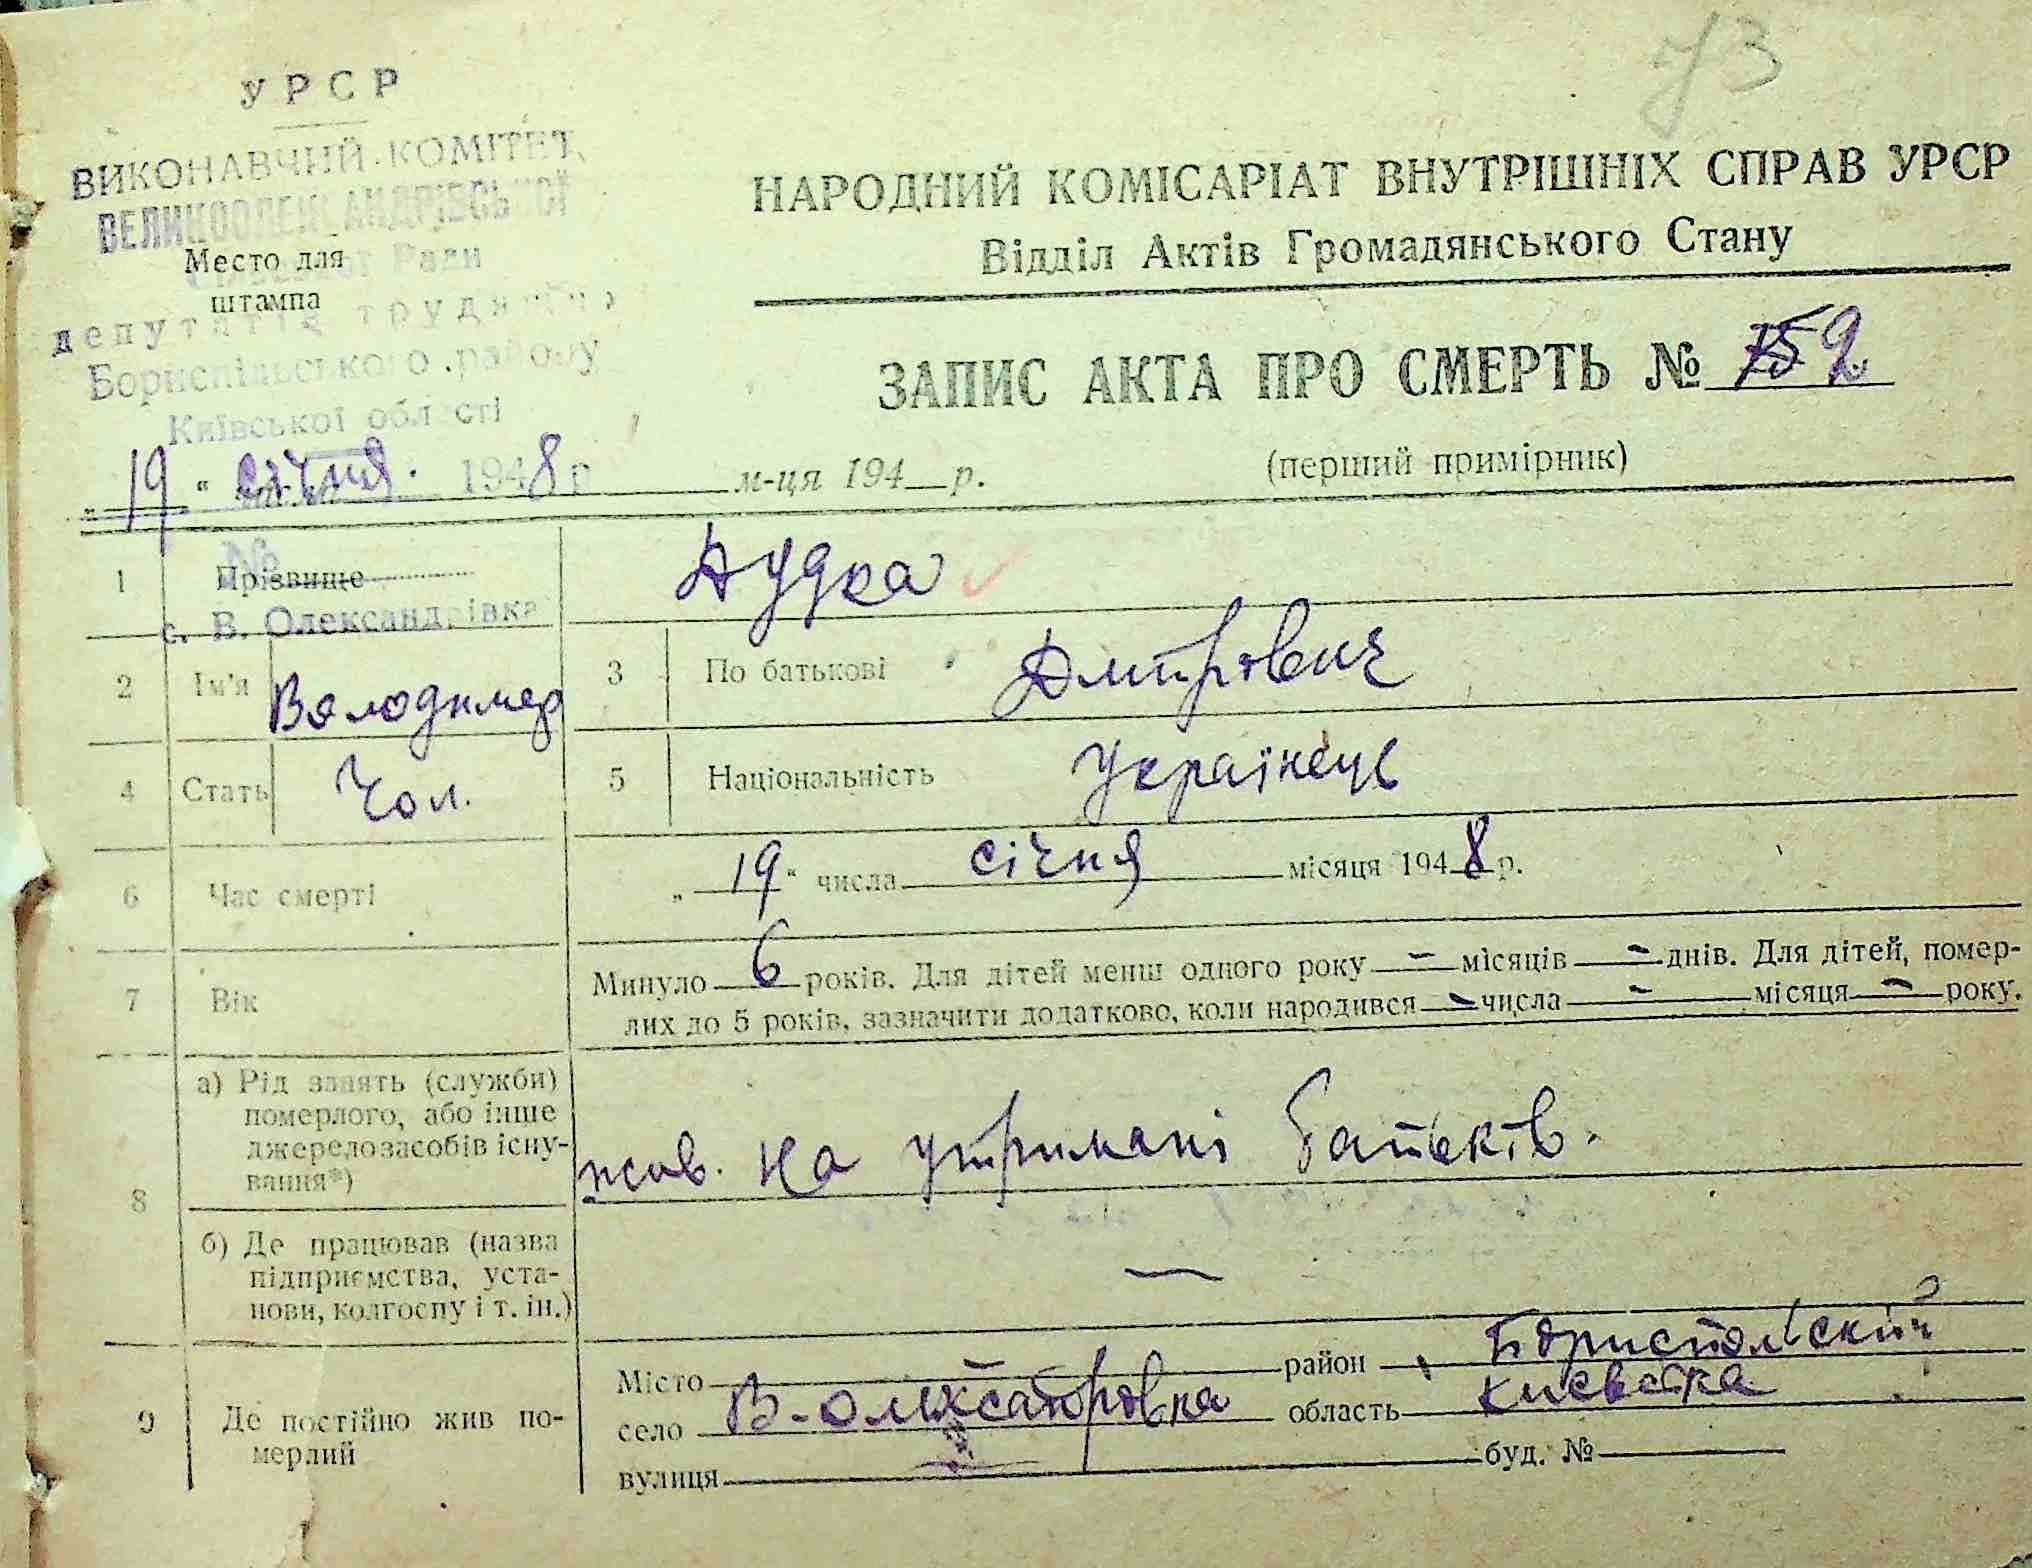 73
УРСР
ВИКОНАВЧИЙ КОМІТЕТ
ВЕЛИКООЛЕКСАНДРІВСЬКОЇ
Ради
Место для
штампа
депутатів трудящих
Бориспільського району
Київської області
НАРОДНИЙ КОМІСАРІАТ ВНУТРІШНІХ СПРАВ УРСР
Відділ Актів Громадянського Стану
ЗАПИС АКТА ПРО СМЕРТЬ № 2
(перший примірник)
„19“ січня 1948 р. м-ця 194 р.
№
с. В. Олександрівка
1 Прізвище Дудка
2 Ім'я Володимер 3 По батькові Дмитрович
4 Стать Чол. 5 Національність Українець
6 Час смерті „19“ числа січня місяця 1948 р.
7 Вік Минуло 6 років. Для дітей менш одного року - місяців - днів. Для дітей, помер-
лих до 5 років, зазначити додатково, коли народився - числа - місяця - року.
8 а) Рід занять (служби)
померлого, або інше
джерело засобів існу-
вання*)
жив. на утримані батьків.
б) Де працював (назва
підприємства, уста-
нови, колгоспу і т. ін.)
—
9 Де постійно жив по-
мерлий
Місто — район Бориспольский
село В-Олексадровка область Киевска
вулиця буд. №